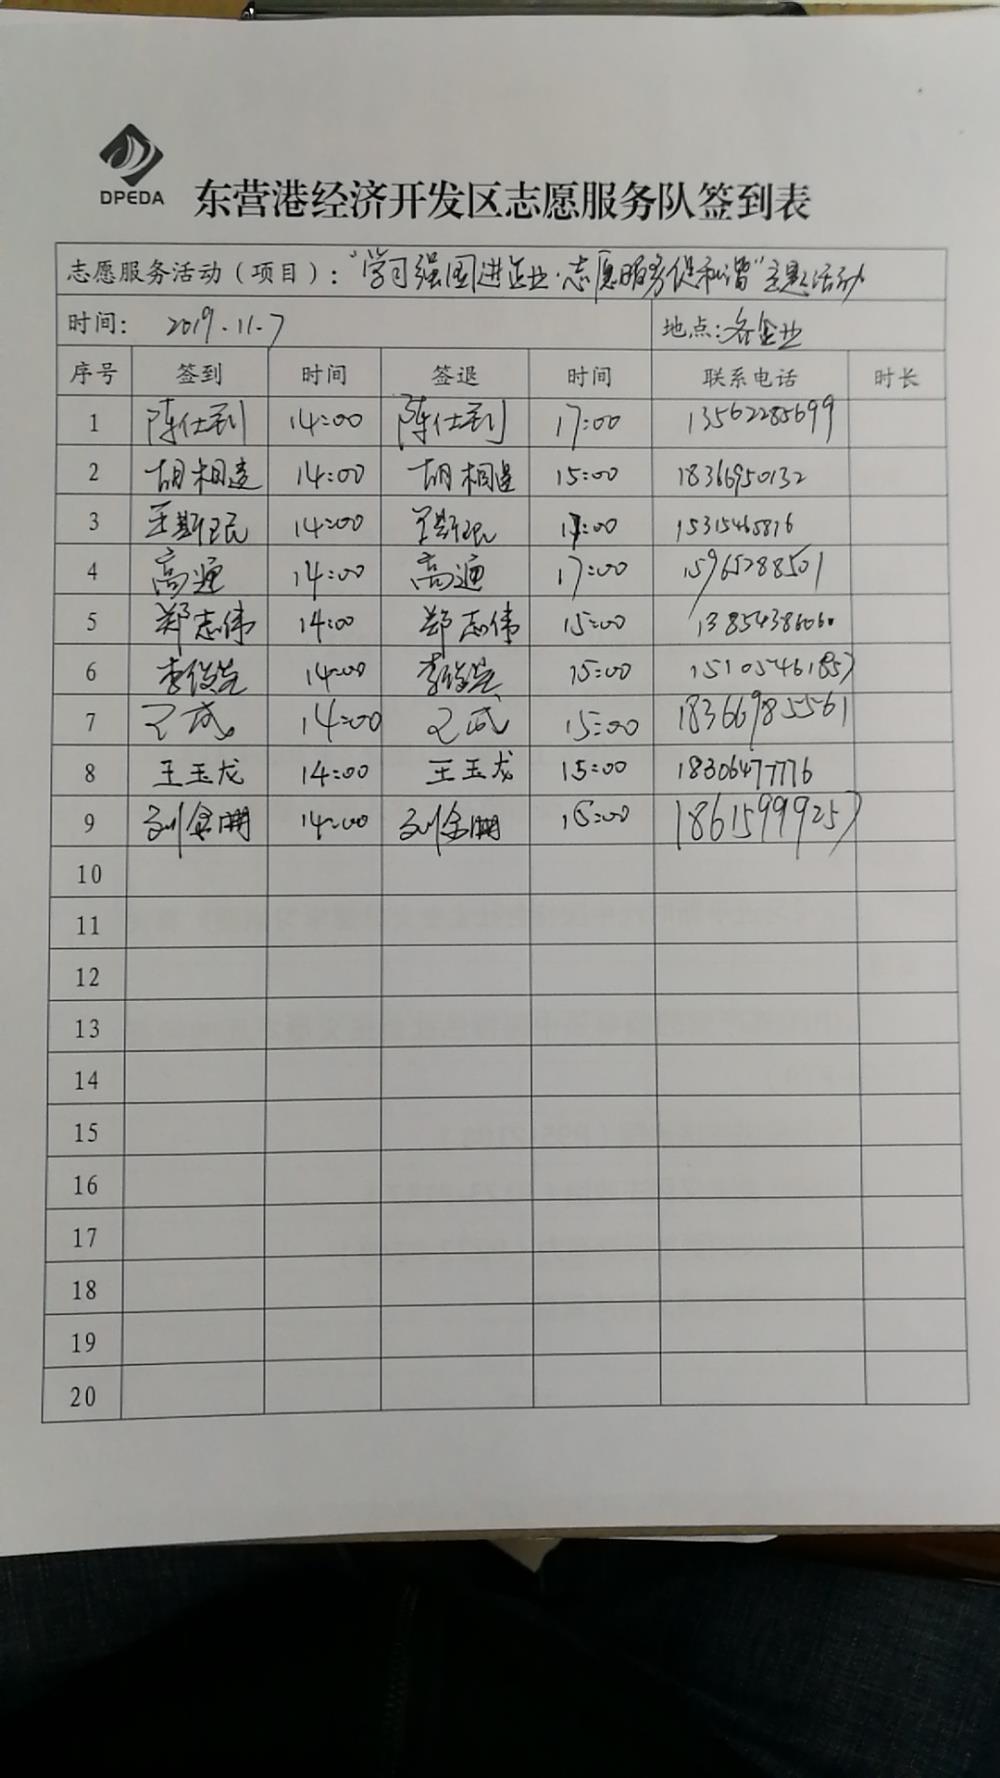 DPEDA
东营港经济开发区志愿服务队签到表
志愿服务活动（项目）："学习强国进企业·志愿服务促和谐"主题活动
时间： 2019.11.7 地点：各企业
序号 签到 时间 签退 时间 联系电话 时长
1 陈仕 14:00 陈仕 17:00 13562285699
2 胡相 14:00 胡相 15:00 18366950132
3 王斯民 14:00 王斯民 17:00 15315465816
4 高通 14:00 高通 17:00 15965288501
5 郑志伟 14:00 郑志伟 15:00 13854386060
6 李俊 14:00 李俊 15:00 15105461857
7 14:00 15:00 18366985561
8 王玉龙 14:00 王玉龙 15:00 18306477776
9 刘金 14:00 刘金 15:00 18615999257
10
11
12
13
14
15
16
17
18
19
20